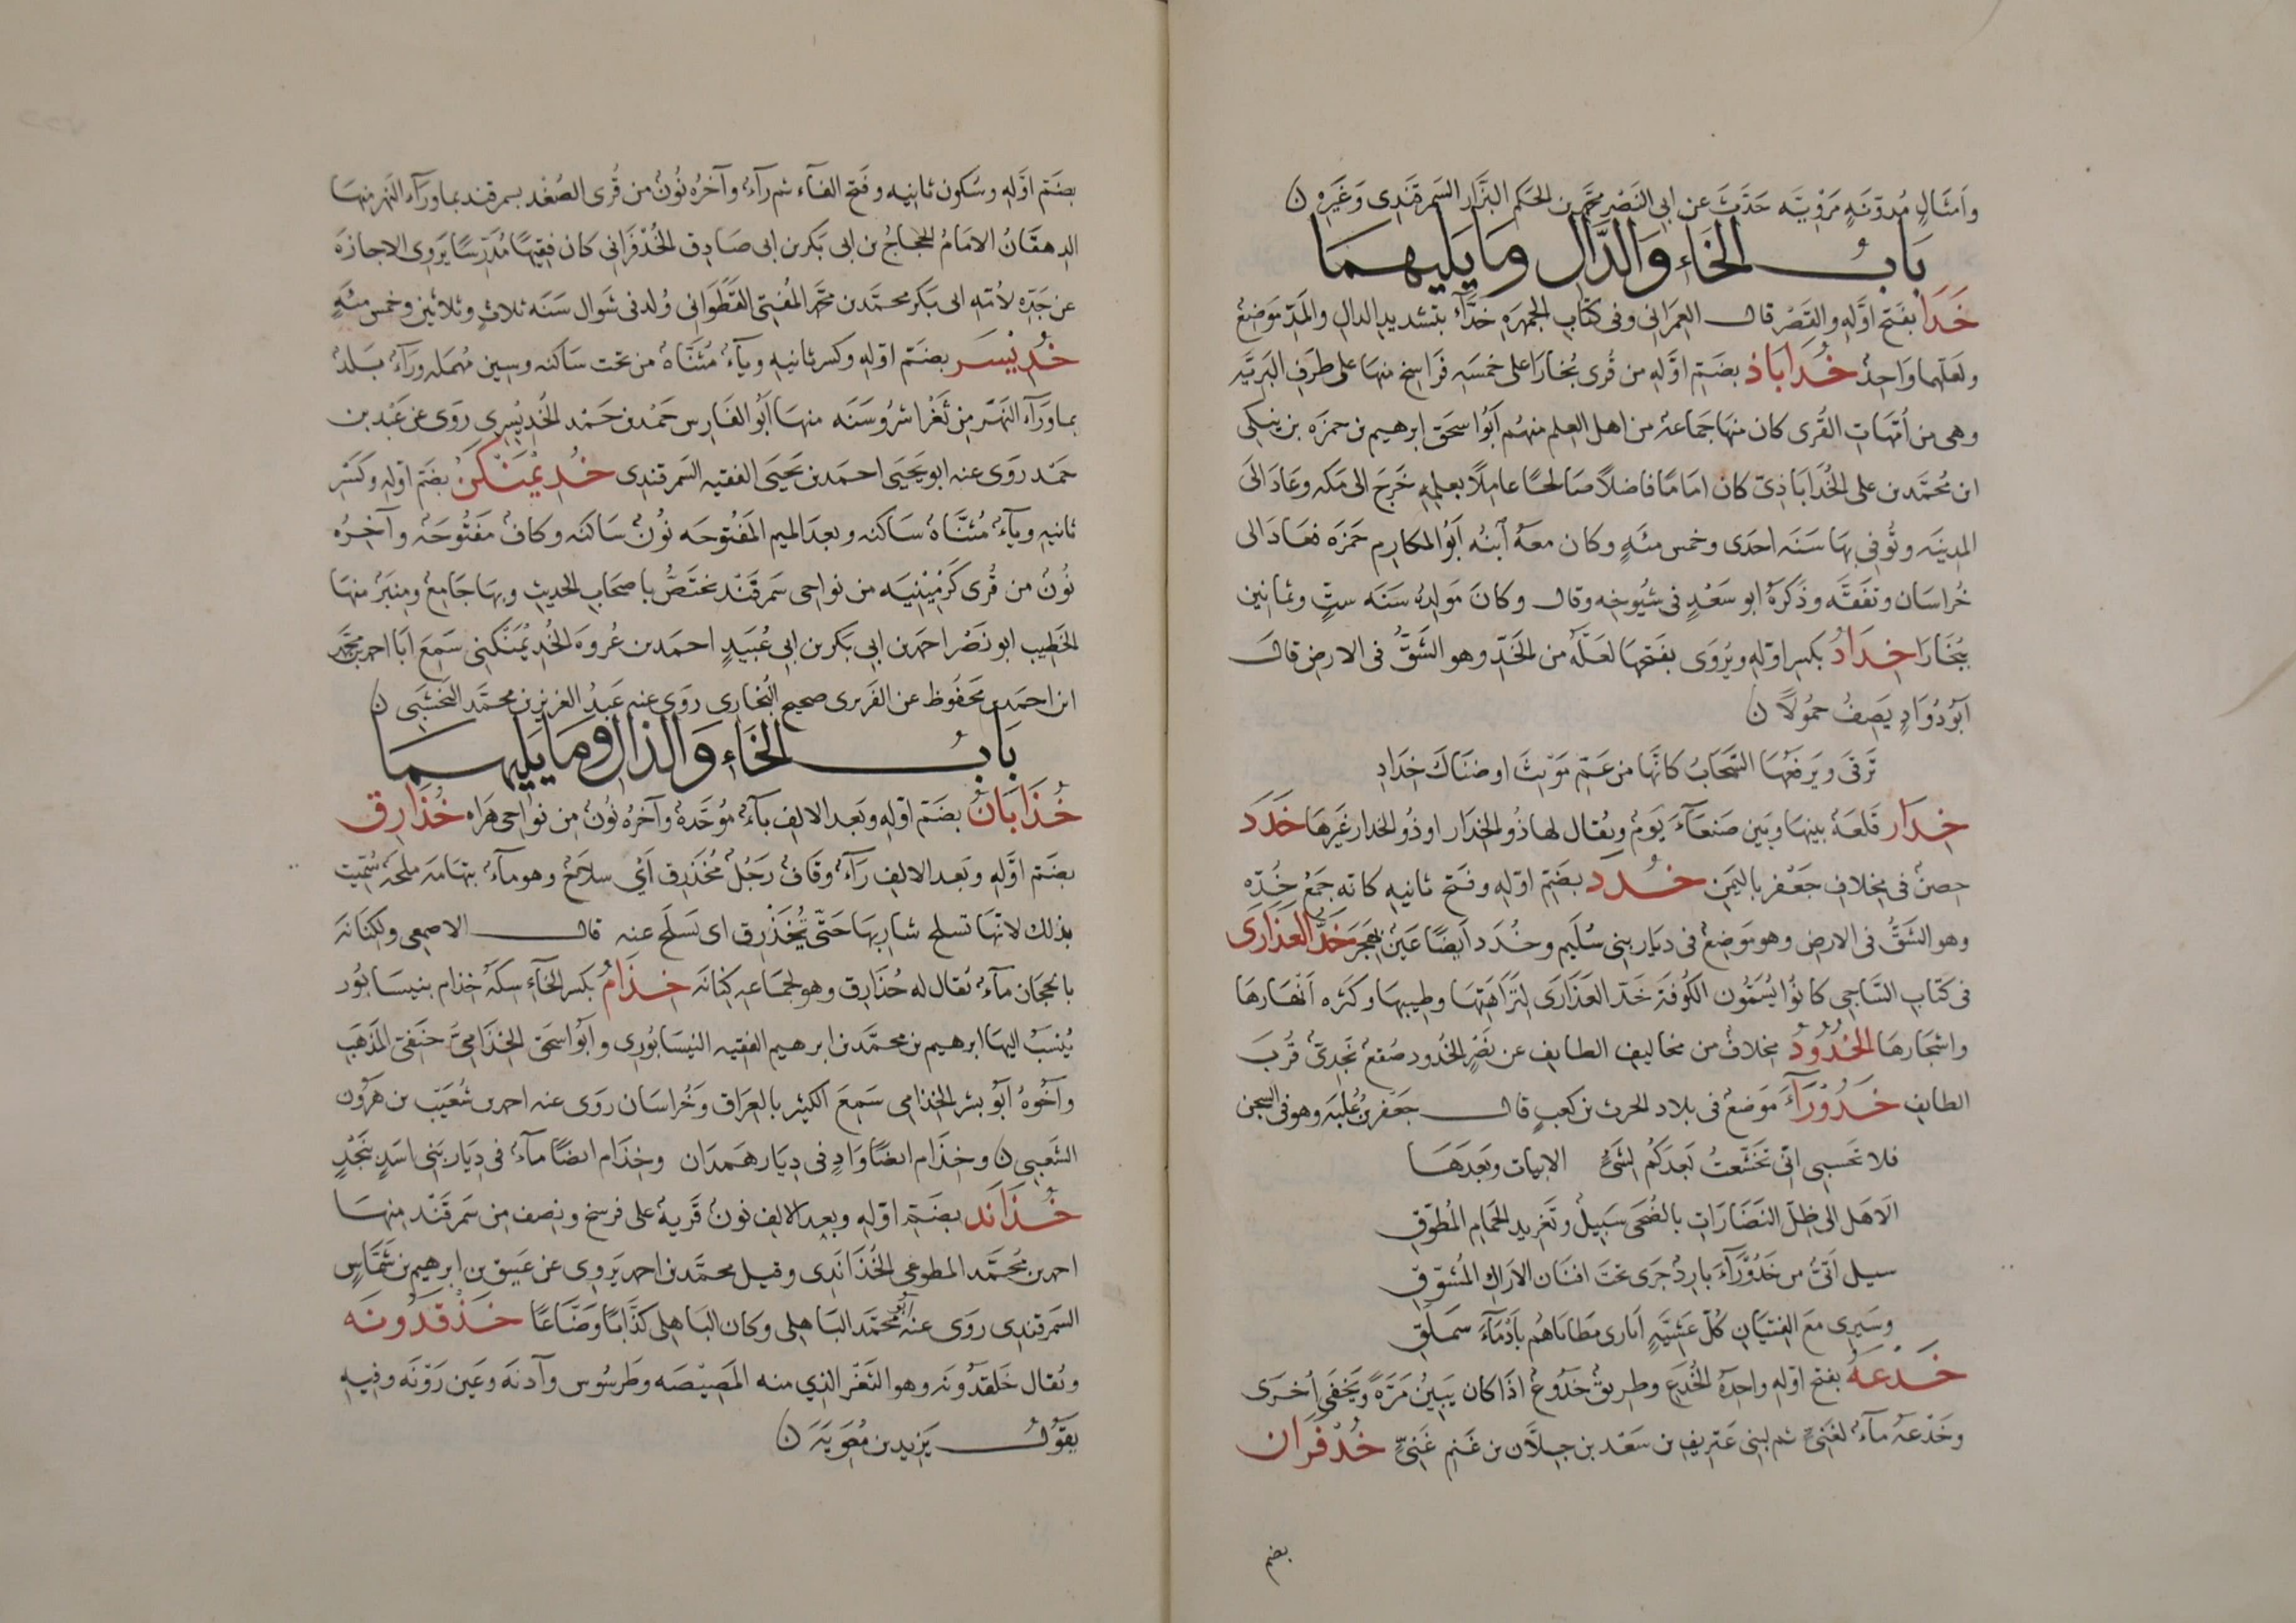 وامثالٍ مُدوّنةٍ مَرْويّة حَدّثَ عن ابى النَصْر محمّد بن الحكم البزّار السَمرقَندى وَغَيره ن
بَابُ الخَاءِ وَالدَّالِ ومَا يَليهمَا
خَدَا بفَتح اوّلهِ والقَصْر قال العِمرانى وفى كتابِ الجمهرَه خدّآءُ بتشديدِ الدالِ والمَدّ موضعُ
ولعَلهما واحِدُ خُدَاباذ بضَم اوّلهِ من قُرى بُخارَا على خمسَه فَراسِخ منهَا على طرَفِ البَريَّه
وهى من اُمّهاتِ القُرى كان منهَا جَماعة من اهل العِلم منهُم اَبُو اسحق ابرهيم بن حمزه بن ينكى
ابن مُحمَّد بن على الخُدَاباذىّ كان امَامًا فاضلاً صَالحًا عامِلًا بعلمِهِ خَرَجَ الى مَكه وعَادَ الى
المدينَه وتُوفى بهَا سَنَه احدَى وخمس مئةٍ وكان معَهُ اَبنُه اَبُو المكارِم حمَزَه فعَادَ الى
خُراسَان وتفقَّه وذكرَهُ ابو سَعْدٍ فى شيُوخِه وقال وكانَ مَولِدُه سَنَه ستٍّ وثمانين
ببُخَارَا خِدَادُ بكسرِ اوّلهِ ويُروَى بفَتحِهَا لعَلّهُ من الخَدّ وهو الشَقُّ فى الارضِ قال
اَبُو دُوَادٍ يَصِفُ حُمُولاً ن
تَرقَى ويَرفعُهَا السَّحَابُ كانّهَا من عَمّ مَوثِبَ اوضنَاكَ خِدَادِ
خِدَار قَلعَة بينهَا وبَين صَنعَآءَ يَومُ ويُقال لها ذُو الخِدَار او ذُو الجدار غَيرهَا خَدَد
حِصنُ فى مِخلافِ جَعْفر باليَمن خُدَد بضَمّ اوّلهِ وفتَح ثانيهِ كانه جَمعُ خُدّه
وهو الشَقُّ فى الارض وهو مَوضِعُ فى ديَار بنى سُلَيم وخُدَد اَيضًا عَينُ بهَجَر خَدُّ العَذَارى
فى كتابِ السَّاجى كانوُا يُسَمُّون الكُوفَة خَدّ العَذَارَى لِنزَاهَتهَا وطِيبهَا وكثرَه انهَارهَا
واشجَارهَا الخُدُودُ مِخلافُ من مخاليف الطايف عن نَصْرٍ الخُدود صُقعُ نَجدىّ قُربَ
الطايفِ خَدُوْرَآءَ مَوضعُ فى بلاد الحرث بن كعبٍ قال جعَفر بنُ عُلبَه وهو فى السجن
فلا تحسبى انّى تخشّعتُ بَعدَكم لشئٍ الابيات وبَعدَهَا
الَا هَل الى ظلّ النضَارَاتِ بالضُحَى سَبيلُ وتَغريد الحمَامِ المُطوّقِ
سيل اَتىّ من خَدُورَآءَ بارِدُ جَرَى تحتَ افنَان الارَاكِ المُسَوّقِ
وسَيرِى معَ الفِتيَانِ كُلّ عَشيّهٍ اُبارى مَطايَاهُم بأَدْمَآءَ سمَلقِ
خَدْعَه بفتح اوّلهِ واحِدَة الخُدَع وطريقُ خَدُوعُ اذَا كان يَبينُ مَرّةً ويَخفَى اُخرَى
وخَدْعَه مآءُ لغَنىّ ثم لبنى عَتريف بن سَعْد بن جِلاَّن بن غَنم غَنىٍّ خُدْفَرَان
بضم
بضَمّ اوّلهِ وسُكون ثانيهِ وفَتح الفآء ثم رآءُ وآخرُه نُونُ من قُرى الصُغْد بسمرقند بما ورَآء النهر منهَا
الدهقَانُ الامَامُ الحجّاجُ بن ابى بَكر بن ابى صَادِق الخُدْفَرانى كان فقيهًا مُدَرّسًا يَروى الاجازهَ
عن جَدّه لاُمّه ابى بَكر محمّد بن محمّد المُفتى القَطَوَانى وُلد فى شوال سَنَه ثلاثٍ وثلاثين وخمس مئهٍ
خُدِيْسَر بضَمّ اوّلهِ وكسر ثانيهِ ويآءُ مُثنّاة من تحت سَاكنه وسين مُهملَه ورَآءُ بَلدُ
بما ورَآء النَهّر من ثَغْر اشرُوسَنَه منهَا اَبُو الفَارِس حمْد بن حَمْد الخُدِيْسرى روَى عن عَبْد بن
حمَيد روَى عنه ابو يَحيَى احمَد بن يَحيَى الفقيه السَمرقندى خُدِيمَنْكَن بضَم اوّلهِ وكسَر
ثانيهِ ويآءُ مُثنّاهُ سَاكنه وبعدَ الميم المَفتُوحَه نوُنُ سَاكنَه وكافُ مَفتُوحَهُ وآخرُه
نُونُ من قُرى كَرْمِينيَه من نواحى سَمرقَند تختَصُّ باصحَابِ الحديثِ وبهَا جَامِعُ ومِنبَرُ منهَا
الخَطيب ابو نَصْر احمد بن ابى بَكر بن ابى عُبَيدٍ احمَد بن عُروهَ الخُديمَنكنى سَمعَ اَبا احمد بن محَمّد
ابن احمَد بن محَفُوظ عن الفَربرى صحيح البُخارى روَى عنه عَبدُ العَزيز بن محمَّد النَخشَبى ن
بَابُ الخَاءِ وَالذالِ ومَا يَليهمَا
خُذَابَانُ بضَمّ اوّلهِ وبَعد الالِف بآءُ مُوَحّدهُ وآخرُه نُونُ من نوَاحى هَراه خُذَارِق
بضَم اوّلهِ وبَعد الالفِ رآءُ وقَافُ رَجُلُ مُخَذرق اَىْ سلاحُ وهو مآءُ بتهَامَه ملحَه سُمّيت
بذلك لانّهَا تسلح شارِبهَا حَتّى يُخَذْرق اى يَسلَح عنه قال الاصمعى ولكنَانة
بالحجَاز مآءُ يُقال له خُذَارِق وهو لجمَاعه كنَانه خِذَامُ بكسر الخآء سِكة خذام بنيسَابُور
يُنسَبُ اليهَا ابرهيم بن محمّد بن ابرهيم الفقيه النيسَابُورى وابُو اسحق الخِذامىّ حنَفى المَذهَب
واَخُوهُ اَبُو بشر الخِذامى سَمعَ الكثيرَ بالعِراق وخُراسَان روَى عنه احمد بن شُعَيب بن هَرُون
الشَعبى ن وخِذَام ايضًا وَادٍ فى دِيَار هَمدَان وخِذَام ايضًا مآءُ فى دِيَار بَنى اسَدٍ بنَجْدٍ
خُذَانَد بضَمّ اوّلهِ وبعد الالِف نونُ قَرية على فرسَخ ونِصف من سَمرقَنْد منهَا
احمد بن مُحَمّد المطوعى الخُذَاندى وقيل محمَّد بن احمد يَروى عن عَتيق بن ابرهيم بن شمّاسٍ
السَمرقندى روَى عنه ابُو محَمّد البَاهلى وكان البَاهلى كذّابًا وضّاعًا خَذْقَدُونَه
ويُقال خَلقدُونَه وهو الثَغْر الذى منه المَصيّصَه وطَرسُوس وآدنَه وعَين زَرْبَه وفيه
يقوُل يَزيد بن مُعوِيَة ن